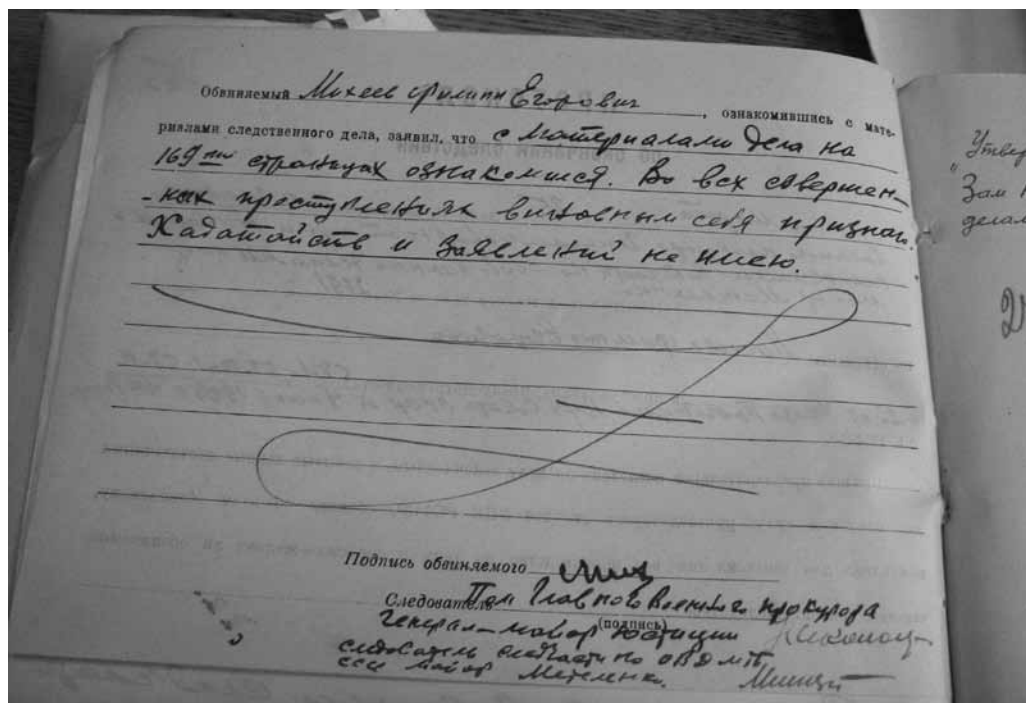 Обвиняемый Михеев Филипп Егорович, ознакомившись с мате-
риалами следственного дела, заявил, что с материалами дела на
169ти страницах ознакомился. Во всех совершен-
-ных преступлениях виновным себя признаю.
Хадатайств и заявлений не имею.
Подпись обвиняемого
Следователь Пом Главного Военного прокурора
(подпись)
генерал-майор юстиции
следователь следчасти по ОВД МГБ
ссср майор Метеленко.
Утвер
"Зам
делам